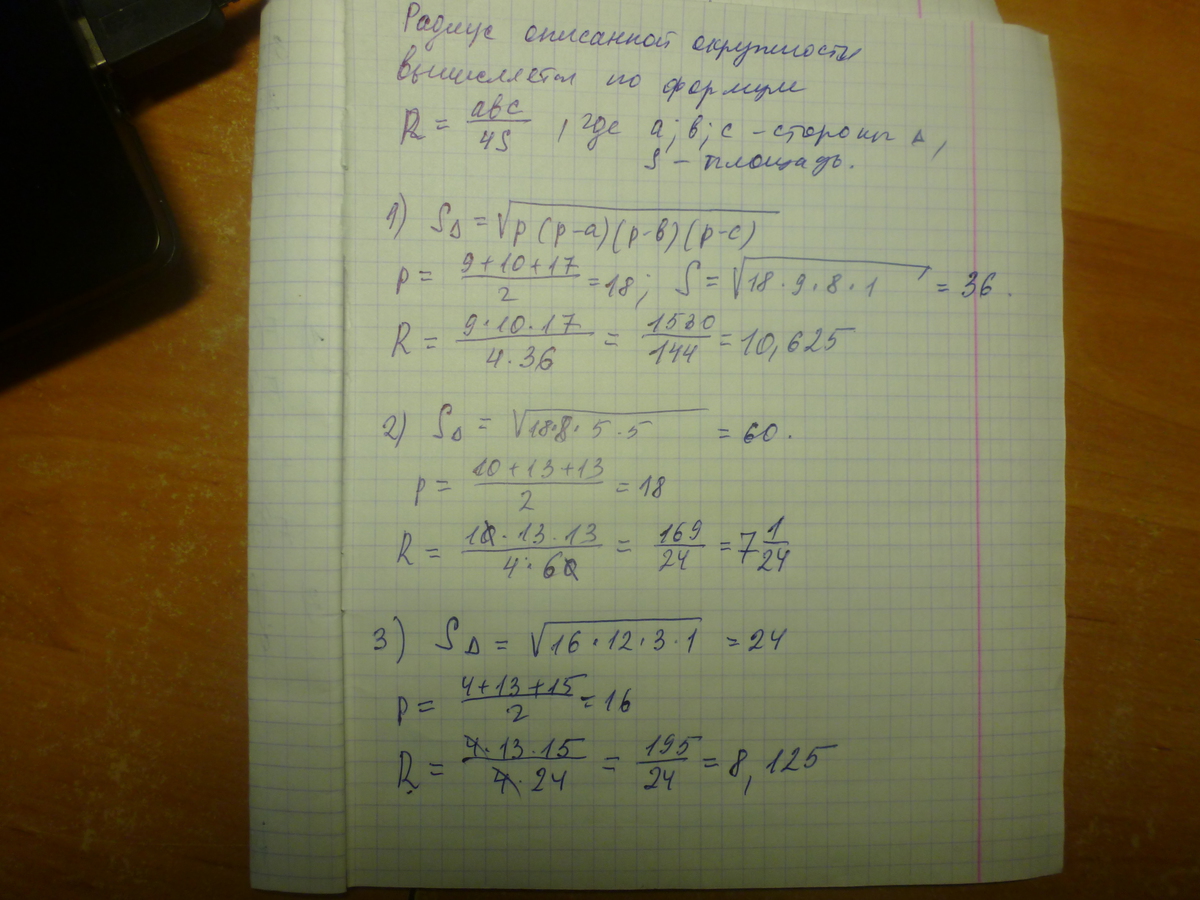 Радиус описанной окружности
вычисляется по формуле
R = abc/4S , где a; в; с - стороны Δ,
S - площадь.
1) SΔ = √p(p-a)(p-в)(p-c)
p = 9+10+17/2 = 18; S = √18·9·8·1 = 36.
R = 9·10·17/4·36 = 1530/144 = 10,625
2) SΔ = √18·8·5·5 = 60.
p = 10+13+13/2 = 18
R = 10·13·13/4·60 = 169/24 = 7 1/24
3) SΔ = √16·12·3·1 = 24
p = 4+13+15/2 = 16
R = 4·13·15/4·24 = 195/24 = 8,125